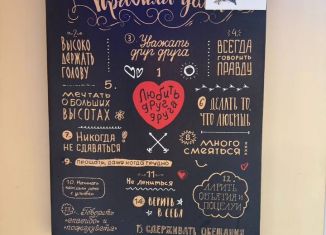 Правила дома
.2.
ВЫСОКО
ДЕРЖАТЬ
ГОЛОВУ
3 Уважать
друг друга
.4.
ВСЕГДА
говорить
ПРАВДУ
1
Любить
друг
друга
5.
мечтать
о больших
ВЫСОТАХ
6 ДЕЛАТЬ ТО,
ЧТО ЛЮБИШЬ
7 Никогда
не сдаваться
8 МНОГО
смеяться...
9 ПРОЩАТЬ, ДАЖЕ КОГДА ТРУДНО
10. Начинать
каждый день
с улыбки
11
Не лениться
12.
ДАРИТЬ
ОБЪЯТИЯ И
ПОЦЕЛУИ
13. Говорить
«спасибо» и
«пожалуйста»
14 ВЕРИТЬ
В СЕБЯ
15 СДЕРЖИВАТЬ ОБЕЩАНИЯ